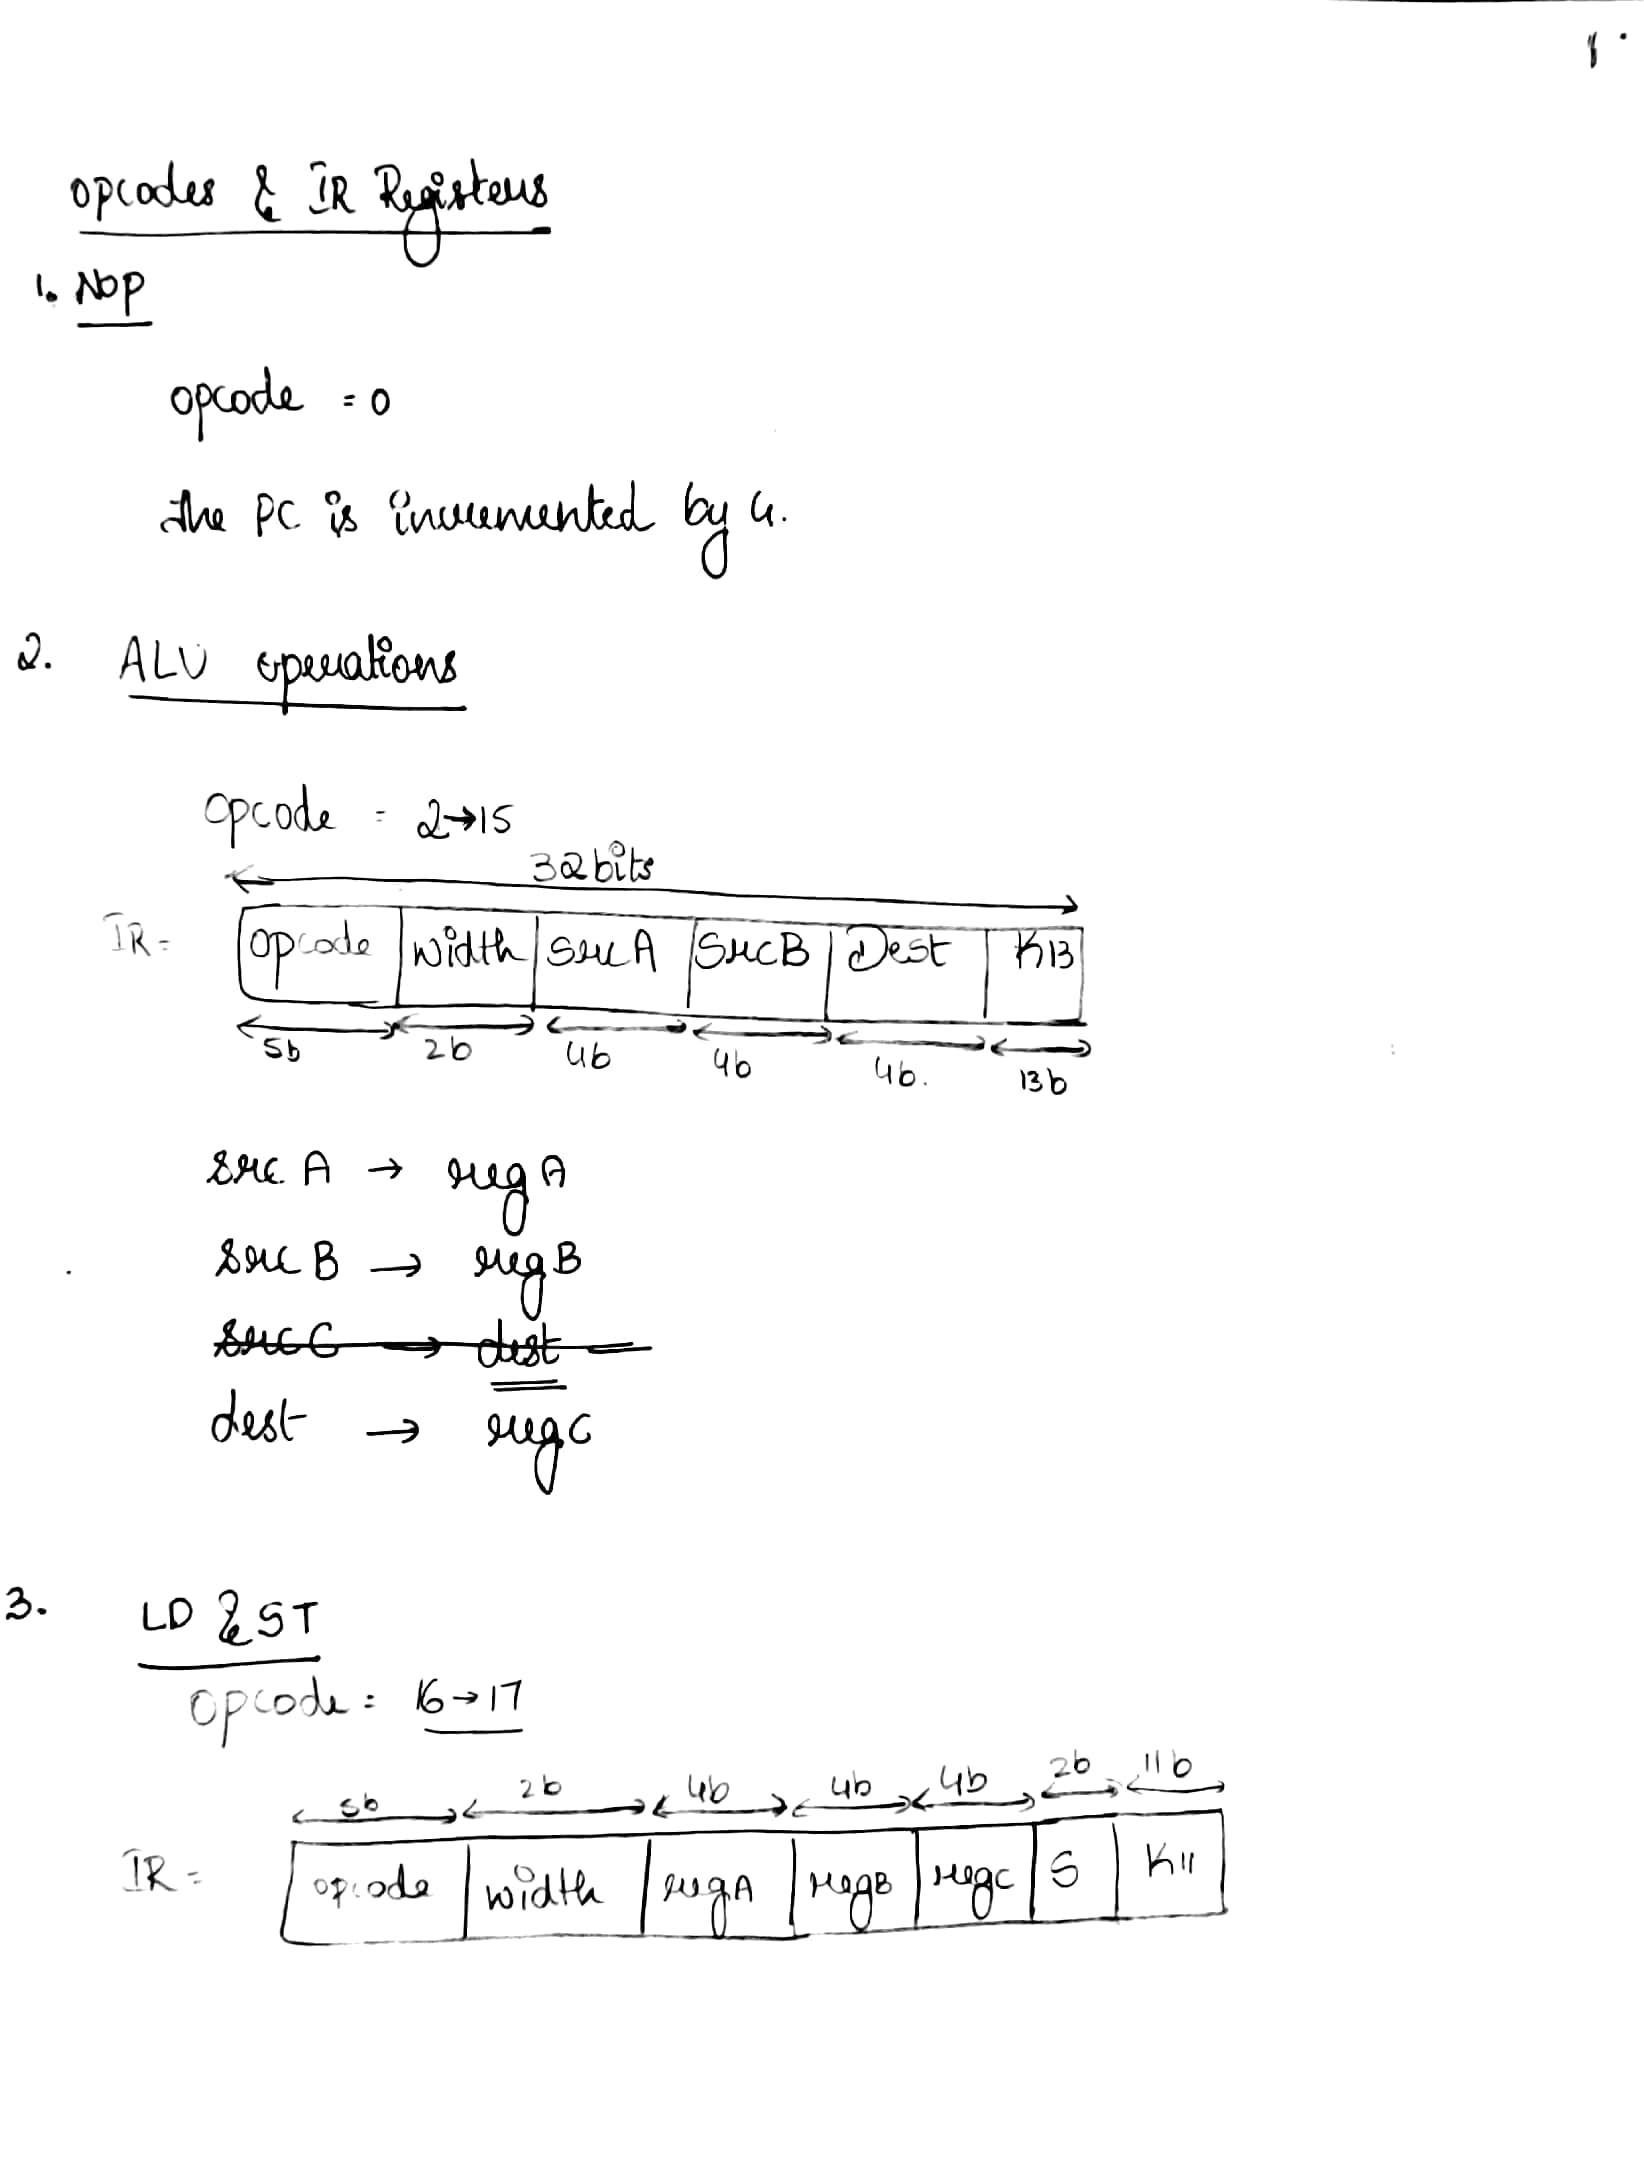 1.
Opcodes & IR Registers
1. NOP
opcode = 0
The PC is incremented by 4.
2. ALU operations
opcode = 2→15
32 bits
IR = opcode width srcA srcB Dest K13
5b 2b 4b 4b 4b. 13b
src A → reg A
src B → reg B
src C → dest
dest → reg C
3. LD & ST
opcode = 16→17
5b 2b 4b 4b 4b 2b 11b
IR = opcode width regA regB regC S K11